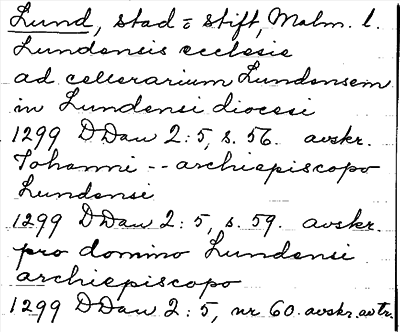 Lund, stad = stift, Malm. l.
Lundensis ecclesie
ad cellerarium Lundensem
in Lundensi diocesi
1299 DDan 2:5, s. 56. avskr.
Johanni -- archiepiscopo
Lundensi
1299 DDan 2:5, s. 59. avskr.
pro domino Lundensi
archiepiscopo
1299 DDan 2:5, nr 60. avskr. av tr.